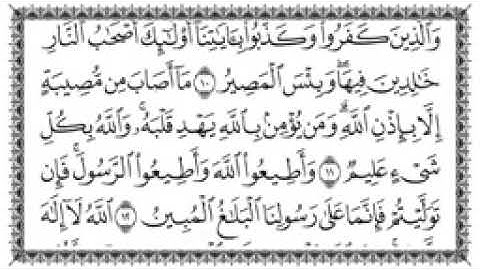 وَٱلَّذِينَ كَفَرُوا۟ وَكَذَّبُوا۟ بِـَٔايَـٰتِنَآ أُو۟لَـٰٓئِكَ أَصْحَـٰبُ ٱلنَّارِ
خَـٰلِدِينَ فِيهَا ۖ وَبِئْسَ ٱلْمَصِيرُ ١٠ مَآ أَصَابَ مِن مُّصِيبَةٍ
إِلَّا بِإِذْنِ ٱللَّهِ ۗ وَمَن يُؤْمِنۢ بِٱللَّهِ يَهْدِ قَلْبَهُۥ ۚ وَٱللَّهُ بِكُلِّ
شَىْءٍ عَلِيمٌ ١١ وَأَطِيعُوا۟ ٱللَّهَ وَأَطِيعُوا۟ ٱلرَّسُولَ ۚ فَإِن
تَوَلَّيْتُمْ فَإِنَّمَا عَلَىٰ رَسُولِنَا ٱلْبَلَـٰغُ ٱلْمُبِينُ ١٢ ٱللَّهُ لَآ إِلَـٰهَ